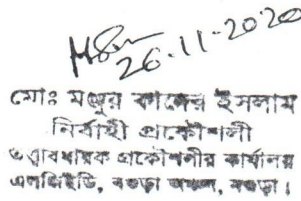 26-11-2020
মোঃ মঞ্জুর কাদের ইসলাম
নির্বাহী প্রকৌশলী
তত্ত্বাবধায়ক প্রকৌশলীর কার্যালয়
এলজিইডি, বগুড়া অঞ্চল, বগুড়া।